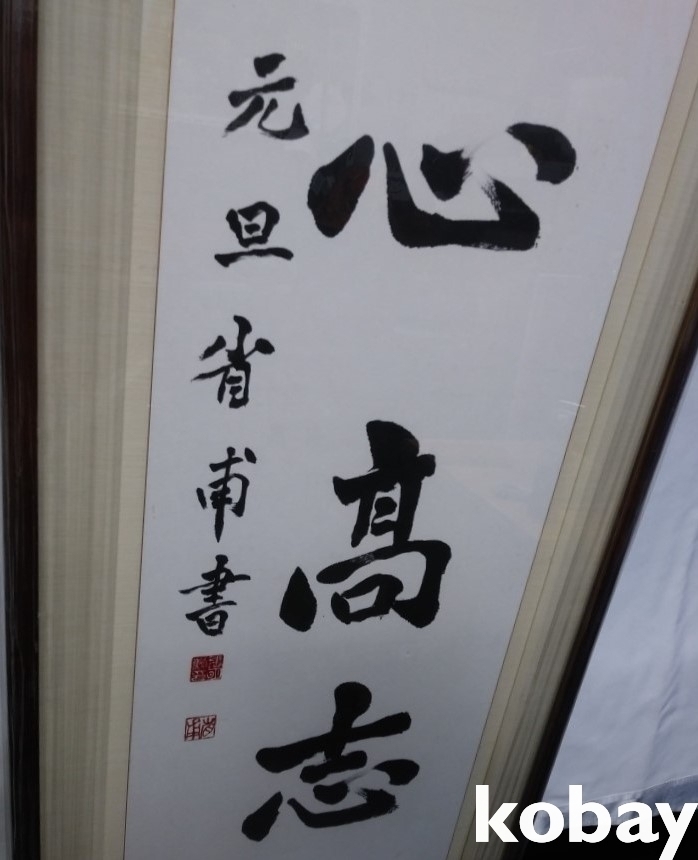 心高志
元旦省甫書
省甫
kobay